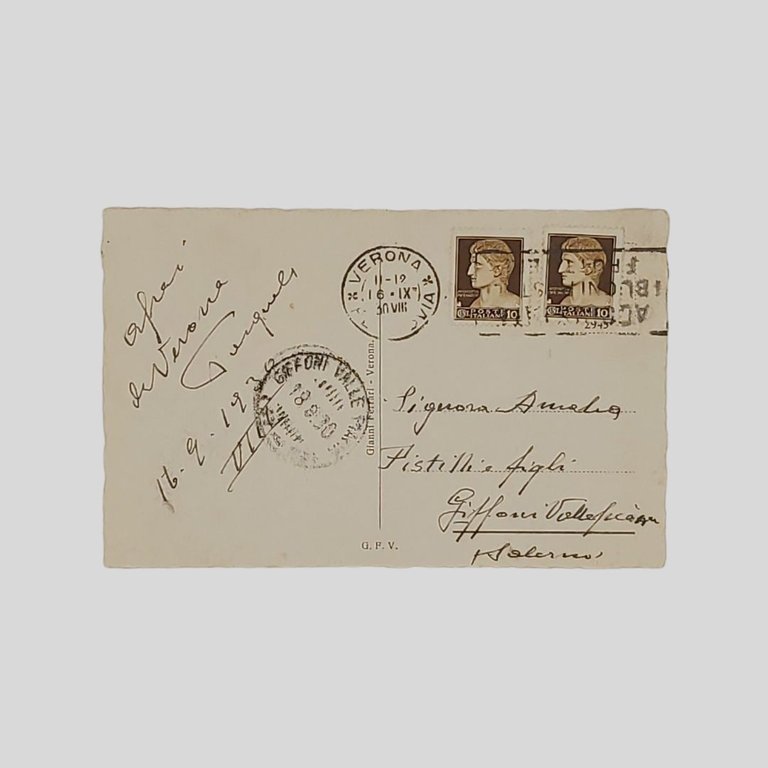 da Verona
Pasquale
16.9.1930
VIII
VERONA
11-12
16·IX
30 VIII
GIFFONI VALLE
18.9.30
POSTE
ITALIANE 10
POSTE
ITALIANE 10
Gianni Ferrari - Verona.
Signora Amalia
Pistilli e figli
Giffoni Vallepiana
Salerno
G. F. V.